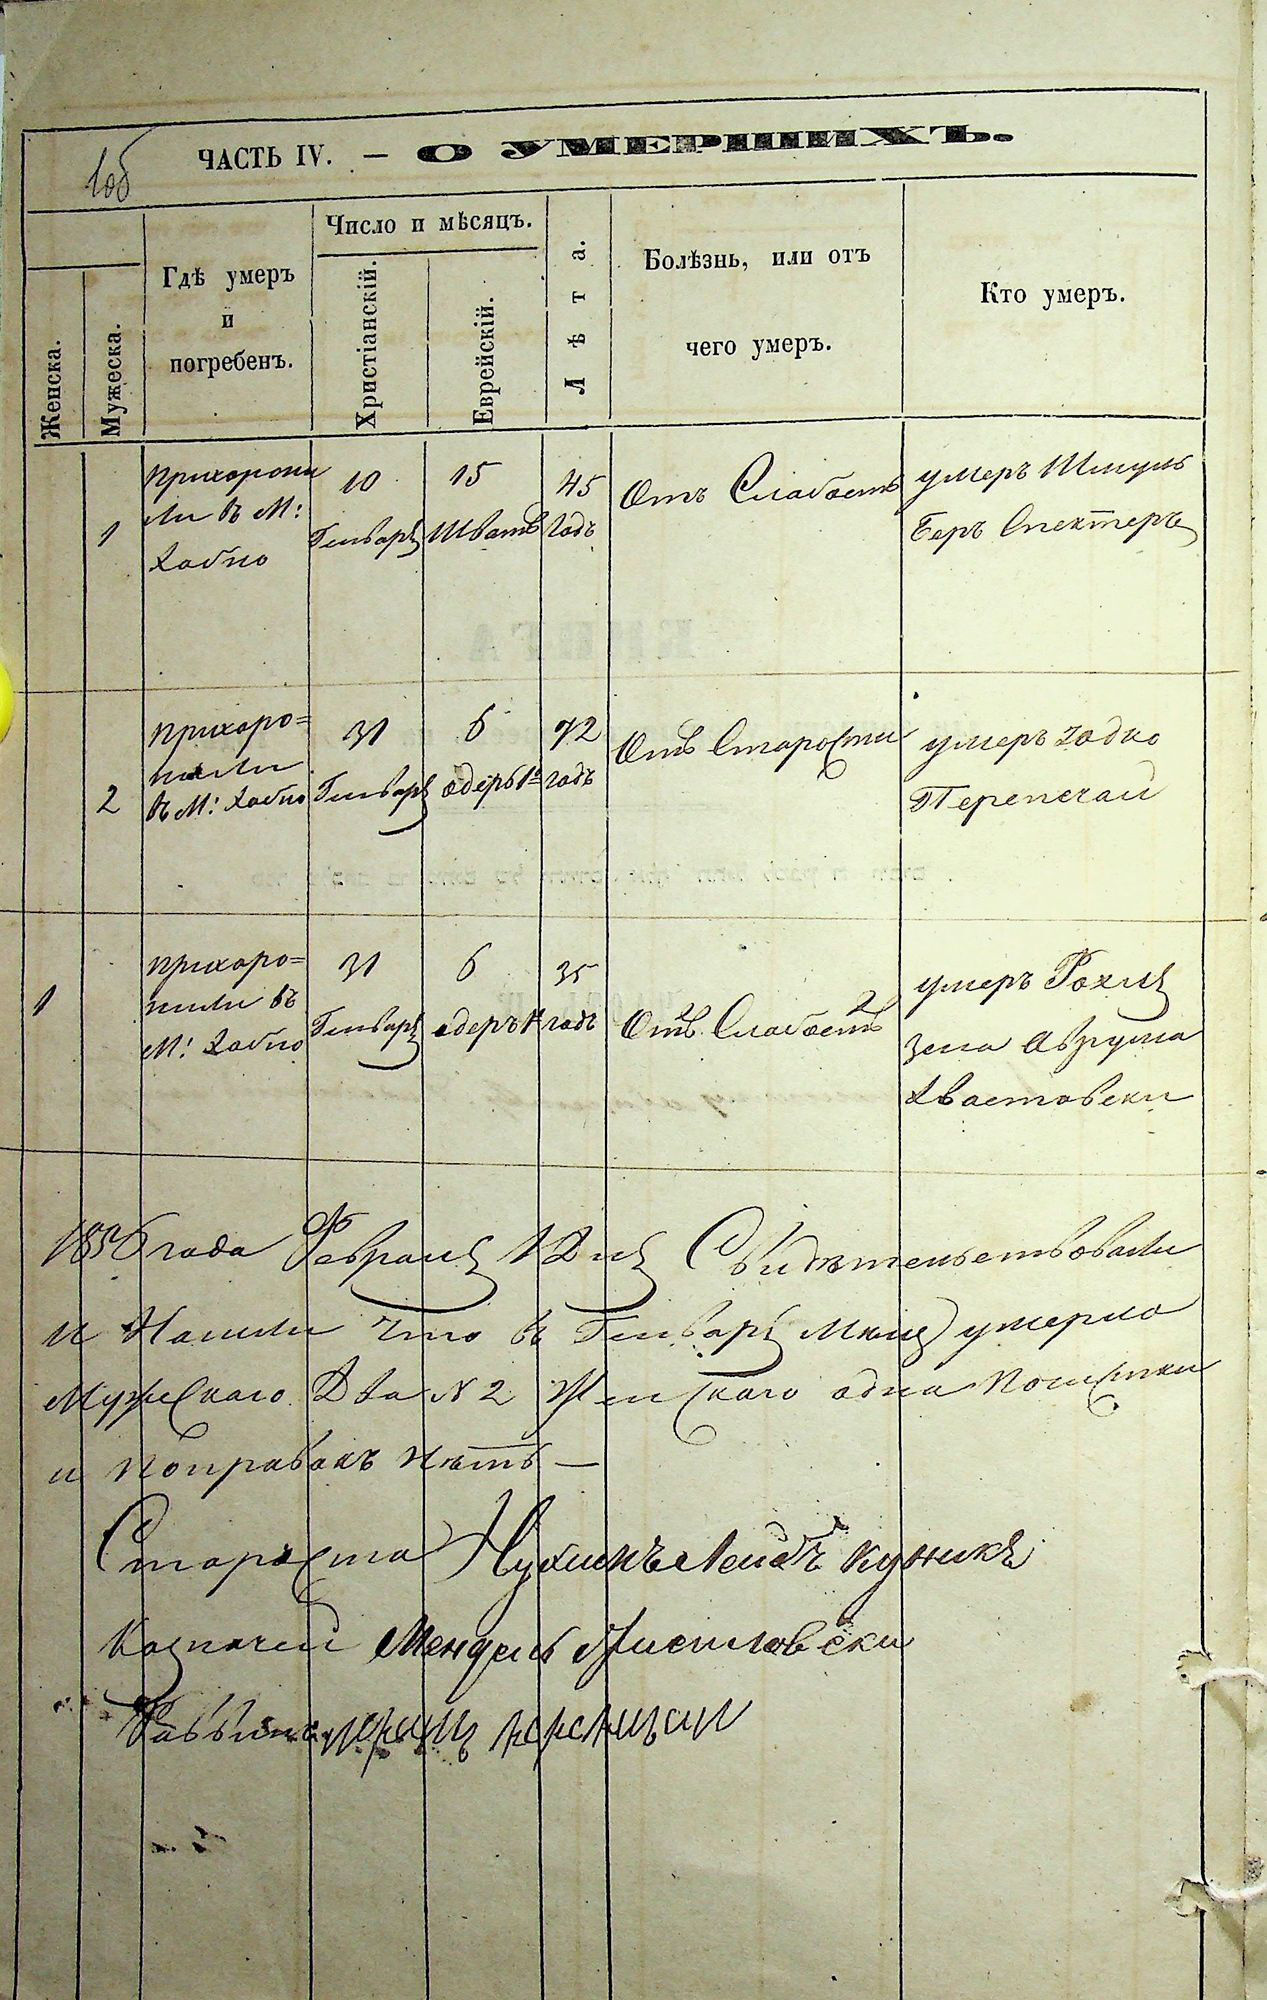 1об
ЧАСТЬ IV. — О УМЕРШИХЪ.
Женска.
Мужеска.
Гдѣ умеръ
и
погребенъ.
Число и мѣсяцъ.
Христіанскій.
Еврейскій.
Лѣта.
Болѣзнь, или отъ
чего умеръ.
Кто умеръ.
1
прихорони
ли въ М:
Хабно
10
Генваря
15
Шватъ
45
годъ
Отъ Слабость
умеръ Шмуль
Беръ Спектеръ
2
прихоро=
нили
въ М: Хабно
31
Генваря
6
адеръ 1го
72
годъ
Отъ Старости
умеръ
Перепечай
1
прихоро=
нили въ
М: Хабно
31
Генваря
6
адеръ 1го
35
годъ
Отъ Слабость
умеръ Рохля
зена Аврума
Хвастовски
1856 года Февраля 1 Дня Свидѣтельствовали
и Нашли что въ Генваря мѣця умерло
Мужскаго Два N 2 Женскаго одна Почистки
и Поправакъ Нѣтъ —
Староста Нухимъ Лейбъ Куникъ
Казначей Мендель
Раввинъ